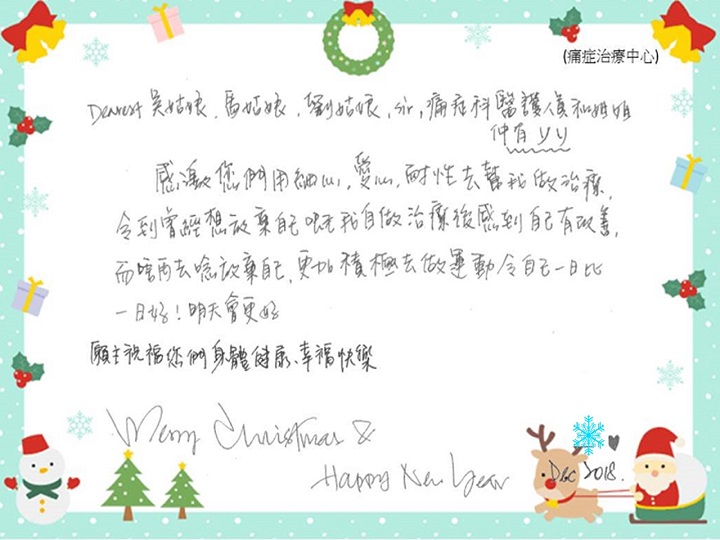 (痛症治療中心)
Dearest 吳姑娘, 馬姑娘, 劉姑娘, sir, 痛症科醫護員和姐姐
仲有 YY
感激您們用細心, 愛心, 耐性去幫我做治療,
令到曾經想放棄自己嘅我自做治療後感到自己有改善,
而唔再去唸放棄自己, 更加積極去做運動令自己一日比
一日好！明天會更好
願主祝福您們身體健康、幸福快樂
Merry Christmas &
Happy New Year
Dec 2018.